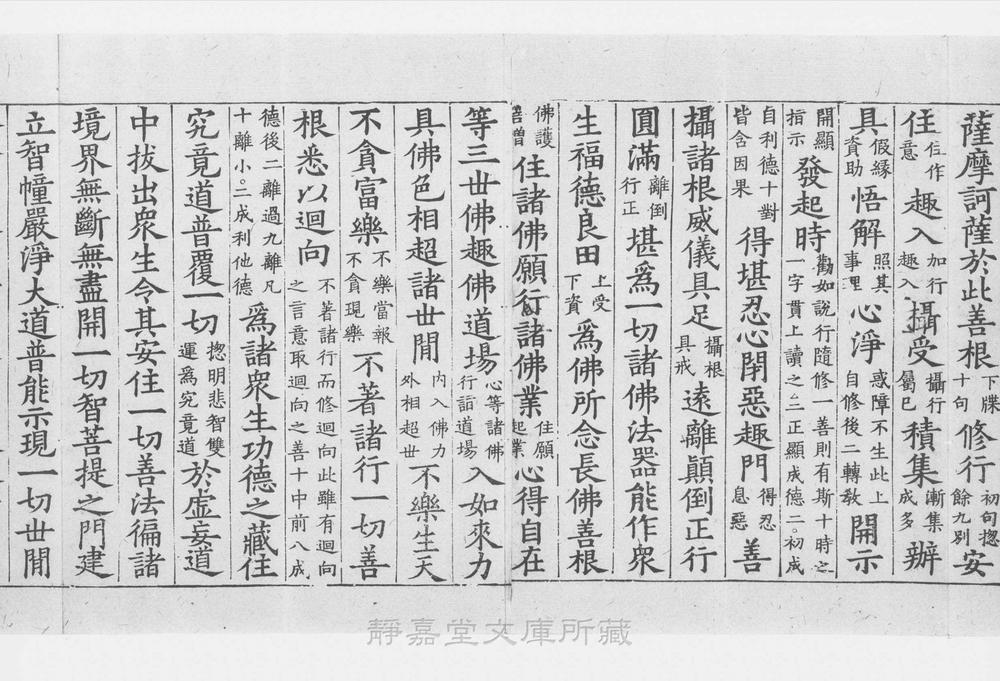 薩摩訶薩於此善根下牒十句修行初句揔餘九别安
住任作意趣入加行趣入攝受攝行屬已積集漸集成多辦
具假緣資助悟解照其事理心淨惑障不生此上自修後二轉教開示
開顯指示發起時勸如說行隨修一善則有斯十時之一字貫上讀之三正顯成德二。初成
自利德十對皆含因果得堪忍心閉惡趣門得忍息惡善
攝諸根威儀具足攝根具戒遠離顛倒正行
圓滿離倒行正堪爲一切諸佛法器能作衆
生福德良田上受下資爲佛所念長佛善根
佛護善增住諸佛願行諸佛業住願起業心得自在
等三世佛趣佛道場心等諸佛行詣道場入如來力
具佛色相超諸世間内入佛力外相超世不樂生天
不貪富樂不樂當報不貪現樂不著諸行一切善
根悉以迴向不著諸行而修迴向此雖有迴向之言意取迴向之善十中前八成
德後二離過九離凡十離小。二成利他德爲諸衆生功德之藏住
究竟道普覆一切揔明悲智雙運爲究竟道於虛妄道
中拔出衆生令其安住一切善法徧諸
境界無斷無盡開一切智菩提之門建
立智幢嚴淨大道普能示現一切世間
靜嘉堂文庫所藏